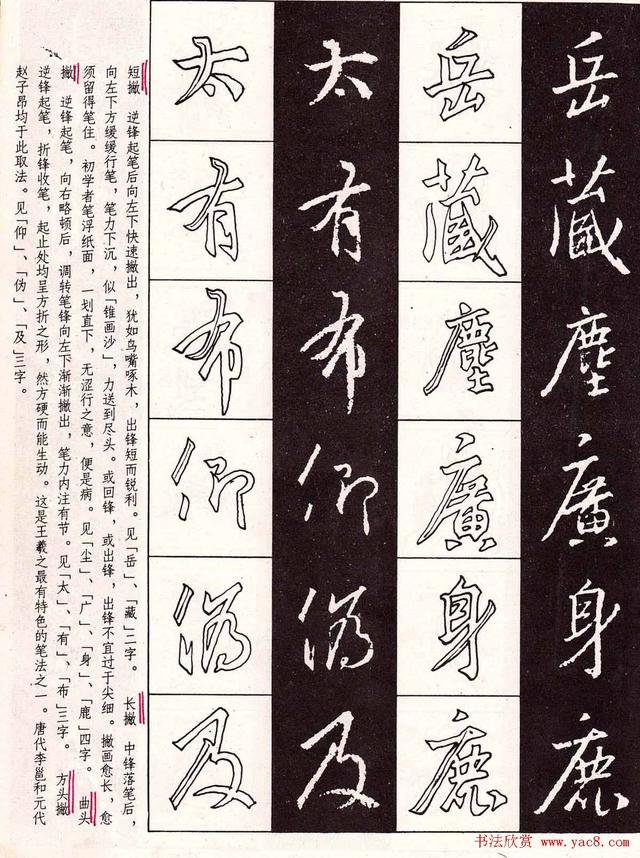 岳藏塵廣身鹿
岳藏塵廣身鹿
太有布仰偽及
太有布仰偽及
短撇 逆锋起笔后向左下快速撇出，犹如鸟嘴啄木，出锋短而锐利。见「岳」、「藏」二字。 长撇 中锋落笔后，
向左下方缓缓行笔，笔力下沉，似「锥画沙」，力送到尽头。或回锋，或出锋，出锋不宜过于尖细。撇画愈长，愈
须留得笔住。初学者笔浮纸面，一划直下，无涩行之意，便是病。见「尘」、「广」、「身」、「鹿」四字。 曲头
撇 逆锋起笔，向右略顿后，调转笔锋向左下渐渐撇出，笔力内注有节。见「太」、「有」、「布」三字。 方头撇
逆锋起笔，折锋收笔，起止处均呈方折之形，然方硬而能生动。这是王羲之最有特色的笔法之一。唐代李邕和元代
赵子昂均于此取法。见「仰」、「伪」、「及」三字。
书法欣赏 www.yac8.com